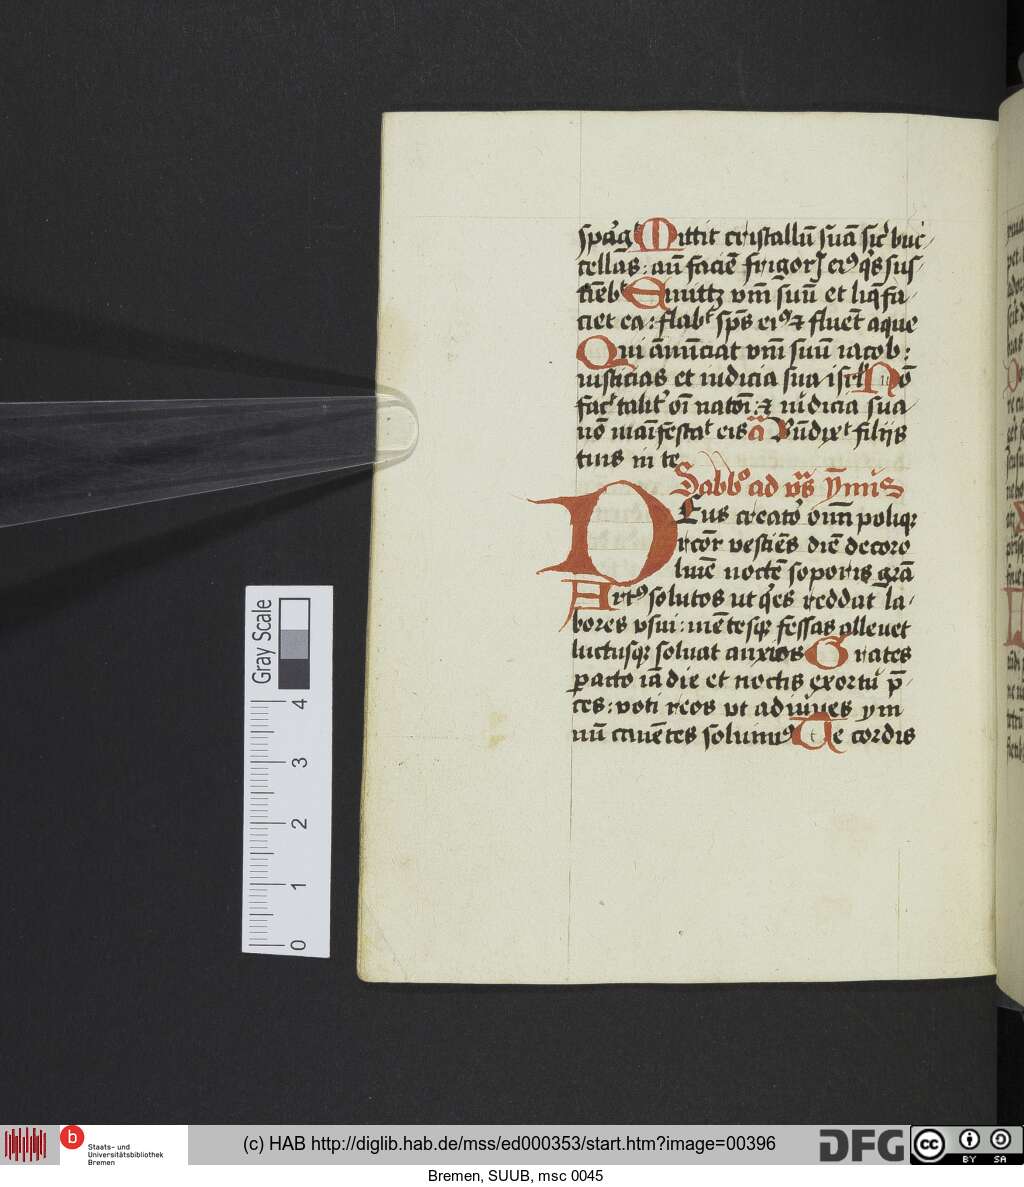 spa͛gᵗ Mittit cristallū suā sic̛ buc
cellas: añ faciē frigorꝭ eiꝰ q̇s sus
tiēbᵗ Emittꝫ vm̄ suū et liq̄fa
ciet ea: flabᵗ sp̄s eiꝰ ⁊ fluēt aque
Qui ānūciat vm̄ suū iacob:
iusticias et iudicia sua isrl̄ Nō
fac̛ talit͛ oī natōi: ⁊ iudicia sua
nō māifestaᵗ eis añ Būdixᵗ filijs
tuis in te
Sabbᵒ ad vs̄s ymnꝰ
DEus creato͛ oīm poliqꝫ
rcō͛r vestiēs diē decoro
lumīe noctē soporis grā
Artꝰ solutos ut q̇es reddat la
bores vsui: mētesqꝫ fessas alleuet
luctusqꝫ soluat anxios Grates
ꝑacto iā die et noctis exortu p̄
ces: voti reos vt adiuues ym
nū canētes soluimꝰ Te cordis
Gray Scale
4
3
2
1
0
b
Staats- und
Universitätsbibliothek
Bremen
(c) HAB http://diglib.hab.de/mss/ed000353/start.htm?image=00396
DFG
cc
BY SA
Bremen, SUUB, msc 0045